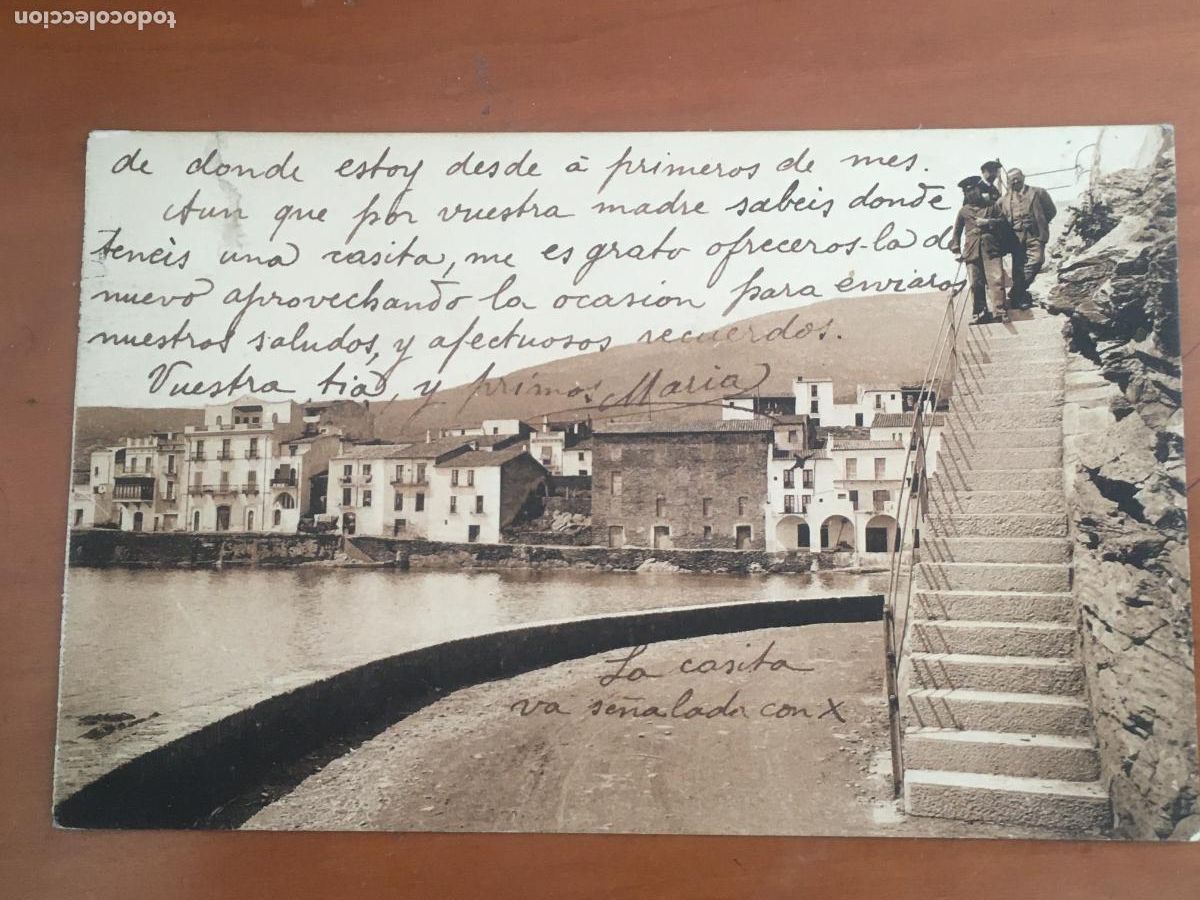 todocoleccion
de donde estoy desde à primeros de mes.
Aun que por vuestra madre sabeis donde
teneis una casita, me es grato ofreceros-la de
nuevo aprovechando la ocasion para enviaros
nuestros saludos, y afectuosos recuerdos.
Vuestra tia, y primos Maria
La casita
va señalada con X